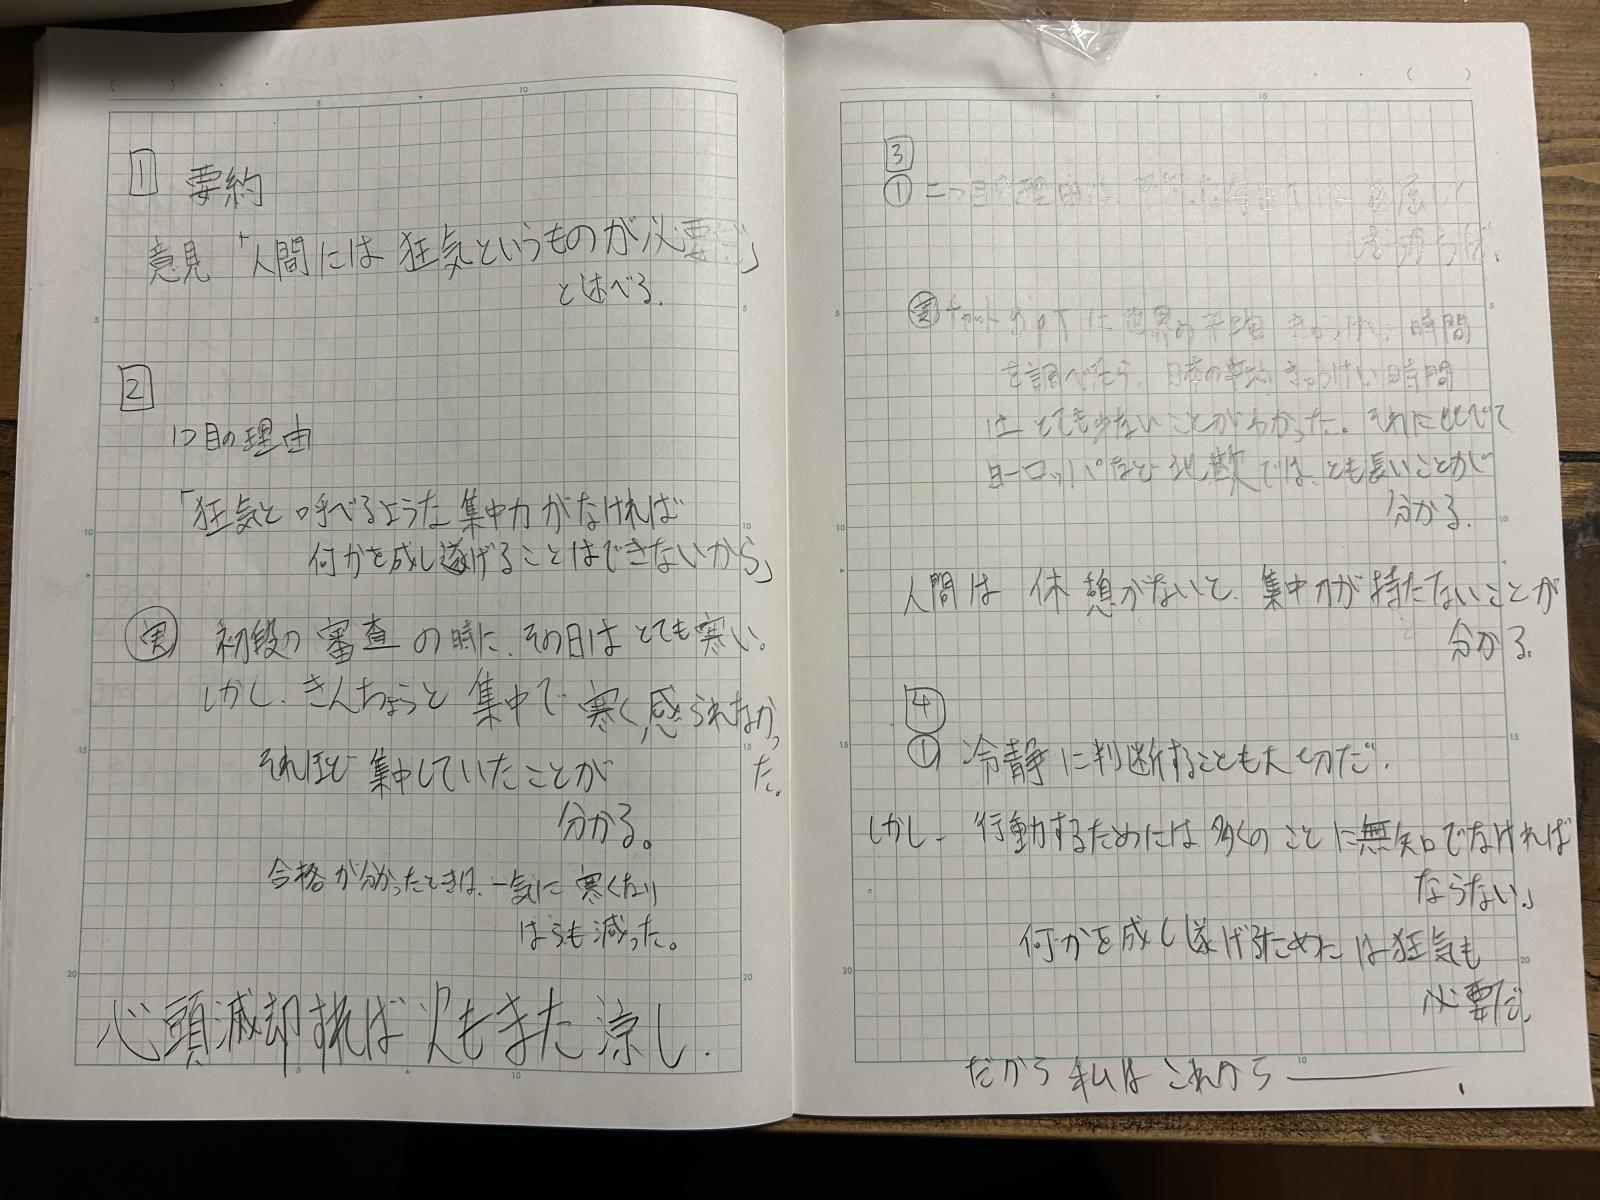 1 要約
意見「人間には狂気というものが必要だ」
と述べる.
2
1つ目の理由
「狂気と呼べるような集中力がなければ
何かを成し遂げることはできないから」
実 初段の審査の時に、その日はとても寒い.
しかし、きんちょうと集中で寒く感られなかっ
た。
それほど集中していたことが
分かる。
合格が分かったときは、一気に寒くなり
はらも減った。
心頭滅却すれば火もまた涼し.
3
① 二つ目の理由は
しまうからだ、
実 チャットGPTに世界の平均きゅうけい時間
を調べたら、日本の平均きゅうけい時間
は とても少ないことがわかった。それにくらべて
ヨーロッパなど北欧では、とも長いことが
分かる.
人間は 休憩がないと、集中力が持たないことが
分かる.
4
① 冷静に判断することも大切だ.
しかし、行動するためには多くのことに無知でなければ
ならない.」
何かを成し遂げるためには狂気も
必要だ.
だから 私は これから―――.